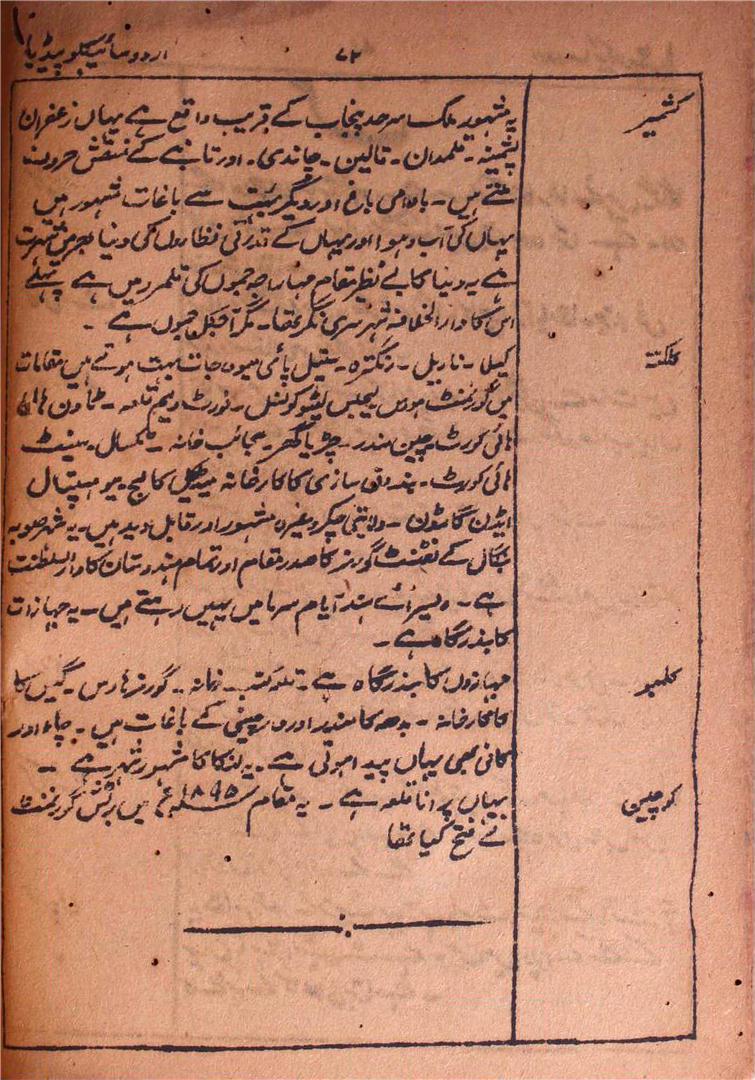 اردو سائیکلو پیڈیا
۷۲
کشمیر
یہ مشہور ملک سرحد پنجاب کے قریب واقع ہے یہاں زعفران
پشمینہ۔ قلمدان۔ قالین۔ چاندی۔ اور تانبے کے منقش ظروف
بنتے ہیں۔ بادامی باغ اور دیگر بہت سے باغات مشہور ہیں
یہاں کی آب و ہوا اور یہاں کے قدرتی نظاروں کی دنیا بھر میں شہرت
ہے یہ دنیا کا بے نظیر مقام مہاراجہ جموں کی قلمرو میں ہے پہلے
اس کا دارالخلافہ شہر سری نگر تھا۔ مگر آجکل جموں ہے۔
کلکتہ
کیلا۔ ناریل۔ رنگترہ۔ سیتل پاٹی میوہ جات بہت ہوتے ہیں مقامات
میں گورنمنٹ ہوس لیجس لیٹو کونسل۔ فورٹ ولیم قلعہ۔ ٹاون ہال
ہائی کورٹ۔ جین مندر۔ چڑیا گھر۔ عجائب خانہ۔ ٹکسال۔ سینٹ
ہائی کورٹ۔ بندوق سازی کا کارخانہ میڈیکل کالج۔ میو ہسپتال
ایڈن گارڈن۔ ولایتی چکر وغیرہ مشہور اور قابل دید ہیں۔ یہ شہر صوبہ
بنگال کے لفٹنٹ گورنر کا صدر مقام اور تمام ہندوستان کا دارالسلطنت
ہے۔ ویسرائے ہند ایام سرما میں یہیں رہتے ہیں۔ یہ جہازات
کا بندرگاہ ہے۔
کلمبو
جہازوں کا بندرگاہ ہے۔ قلعہ کتب خانہ۔ گورنر ہاوس۔ گیس کا
کارخانہ۔ بدھ کا مندر اور دارچینی کے باغات ہیں۔ چاء اور
کافی بھی یہاں پیدا ہوتی ہے۔ یہ لنکا کا مشہور شہر ہے۔
کوچین
یہاں پرانا قلعہ ہے۔ یہ مقام ۱۸۹۵ء میں برٹش گورنمنٹ
نے فتح کیا تھا